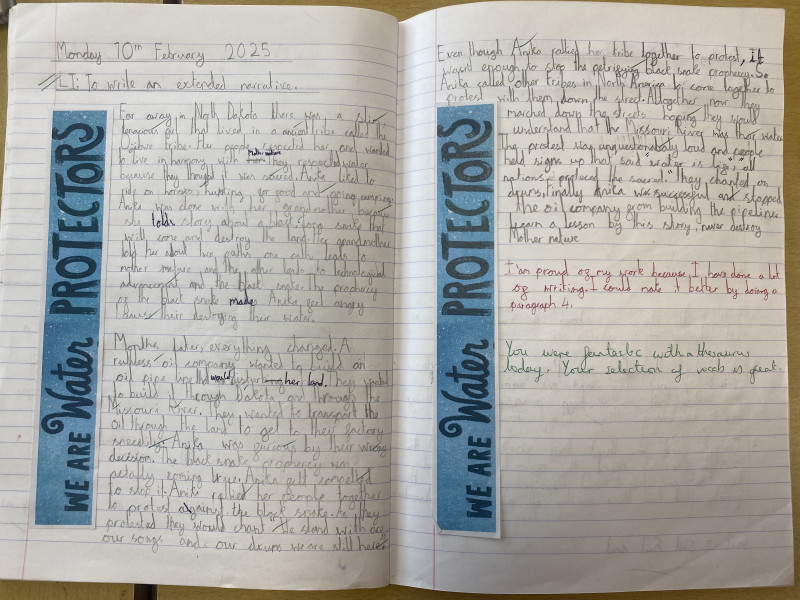 Monday 10th February 2025
LI: To write an extended narrative.
WE ARE Water PROTECTORS
Far away in North Dakota there was a
tenacious girl that lived in a ancient tribe called the
Ojibwe tribe. Her people respected her and wanted
to live in harmony with Mother nature they respected water
because they thought it was sacred. Anika liked to
ride on horses, hunting for food and going camping.
Anika was close with her grandmother because
she told story about a black snake that
will come and destroy the land. Her grandmother
told her about two paths one path leads to
mother nature and the other leads to technological
advancement and the black snake. The prophecy
of the black snake made Anika felt angry
their destroying their water.
Months later, everything changed. A
ruthless oil company wanted to build an
oil pipe would her land. They wanted
to build it through Dakota and through the
Missouri River. They wanted to transport the
oil through the land to get to their factory
speedily. Anika was furious by their wrong
decision. The black snake prophercy was
actally coming true. Anika felt compelled
to stop it. Anika rallied her people together
to protest against the black snake. As they
protested they would chant "We stand with are
our songs and our drums we are still here"
WE ARE Water PROTECTORS
Even though Anika rallied her tribe together to protest, it
wasn't enough to stop the petrifying black snake prophecy. So
Anika called other tribes in North America to come together to
protest with them down the street. Altogether now they
marched down the streets hoping they would
understand that the Missouri River was their water
The protest was unquestionably loud and people
held signs up that said "water is life," all
nations protect the sacred." They chanted on
drums. Finally Anika was successful and stopped
the oil company from building the pipeline.
Learn a lesson by this story, never destroy
Mother nature
I am proud of my work because I have done a lot
of writing. I could make it better by doing a
paragraph 4.
You were fantastic with a thesaurus
today. Your selection of vocab is great.